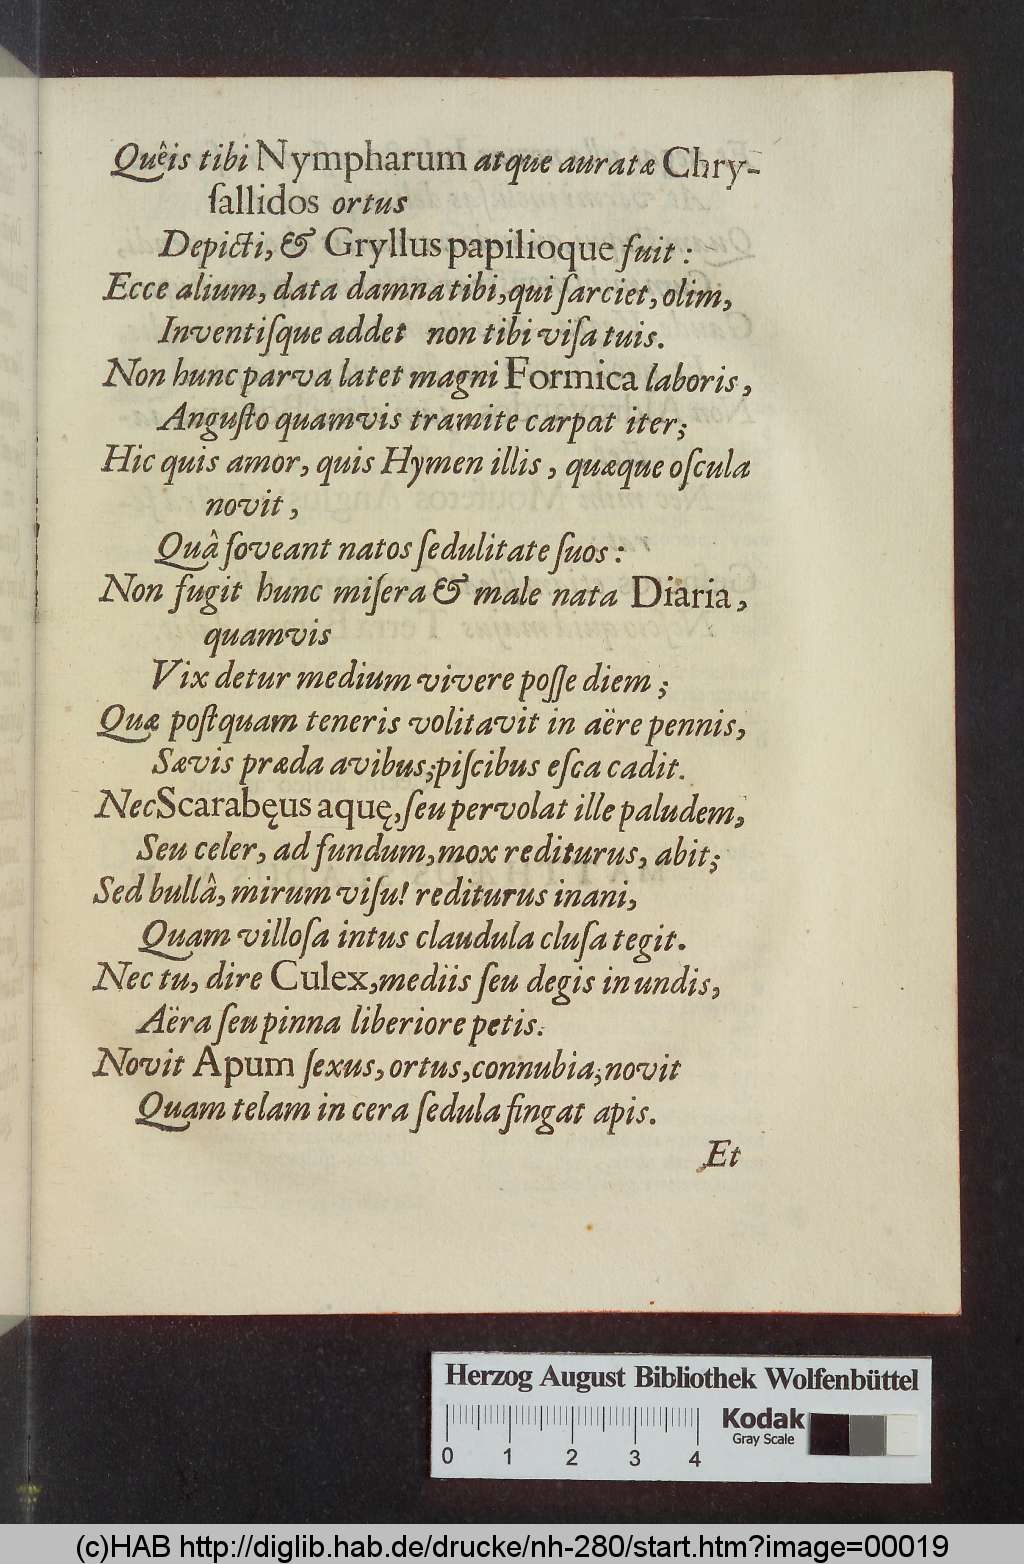 Quêis tibi Nympharum atque auratæ Chry-
ſallidos ortus
Depicti, & Gryllus papilioque fuit :
Ecce alium, data damna tibi, qui ſarciet, olim,
Inventiſque addet non tibi viſa tuis.
Non hunc parva latet magni Formica laboris,
Anguſto quamvis tramite carpat iter;
Hic quis amor, quis Hymen illis, quæque oſcula
novit,
Quâ foveant natos ſedulitate ſuos :
Non fugit hunc miſera & male nata Diaria,
quamvis
Vix detur medium vivere poſſe diem ;
Quæ poſtquam teneris volitavit in aëre pennis,
Sævis præda avibus, piſcibus eſca cadit.
Nec Scarabęus aquę, ſeu pervolat ille paludem,
Seu celer, ad fundum, mox rediturus, abit;
Sed bullâ, mirum viſu! rediturus inani,
Quam villoſa intus claudula cluſa tegit.
Nec tu, dire Culex, mediis ſeu degis in undis,
Aëra ſeu pinna liberiore petis.
Novit Apum ſexus, ortus, connubia; novit
Quam telam in cera ſedula fingat apis.
Et
Herzog August Bibliothek Wolfenbüttel
Kodak
Gray Scale
0 1 2 3 4
(c)HAB http://diglib.hab.de/drucke/nh-280/start.htm?image=00019